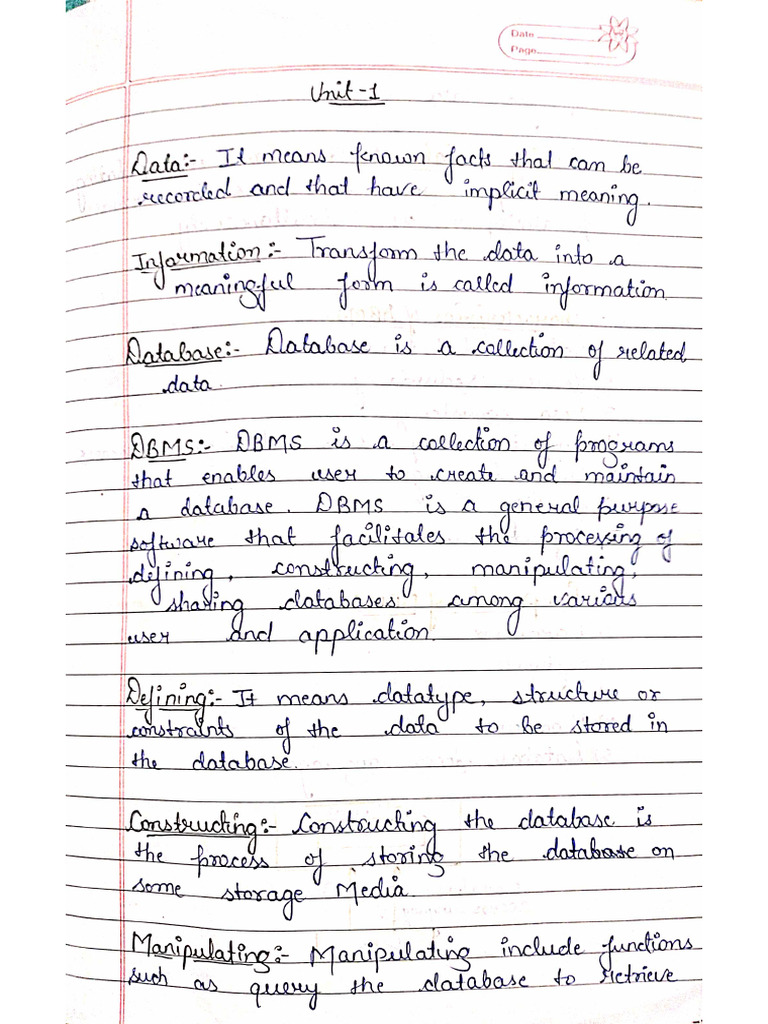 Date
Page
Unit-1
Data:- It means known facts that can be
recorded and that have implicit meaning.
Information:- Transform the data into a
meaningful form is called information
Database:- Database is a collection of related
data.
DBMS:- DBMS is a collection of programs
that enables user to create and maintain
a database. DBMS is a general purpose
software that facilitates the processing of
defining, constructing, manipulating,
sharing databases among various
user and application.
Defining:- It means datatype, structure or
constraints of the data to be stored in
the database.
Constructing:- Constructing the database is
the process of storing the database on
some storage Media.
Manipulating:- Manipulating include functions
such as query the database to retrieve